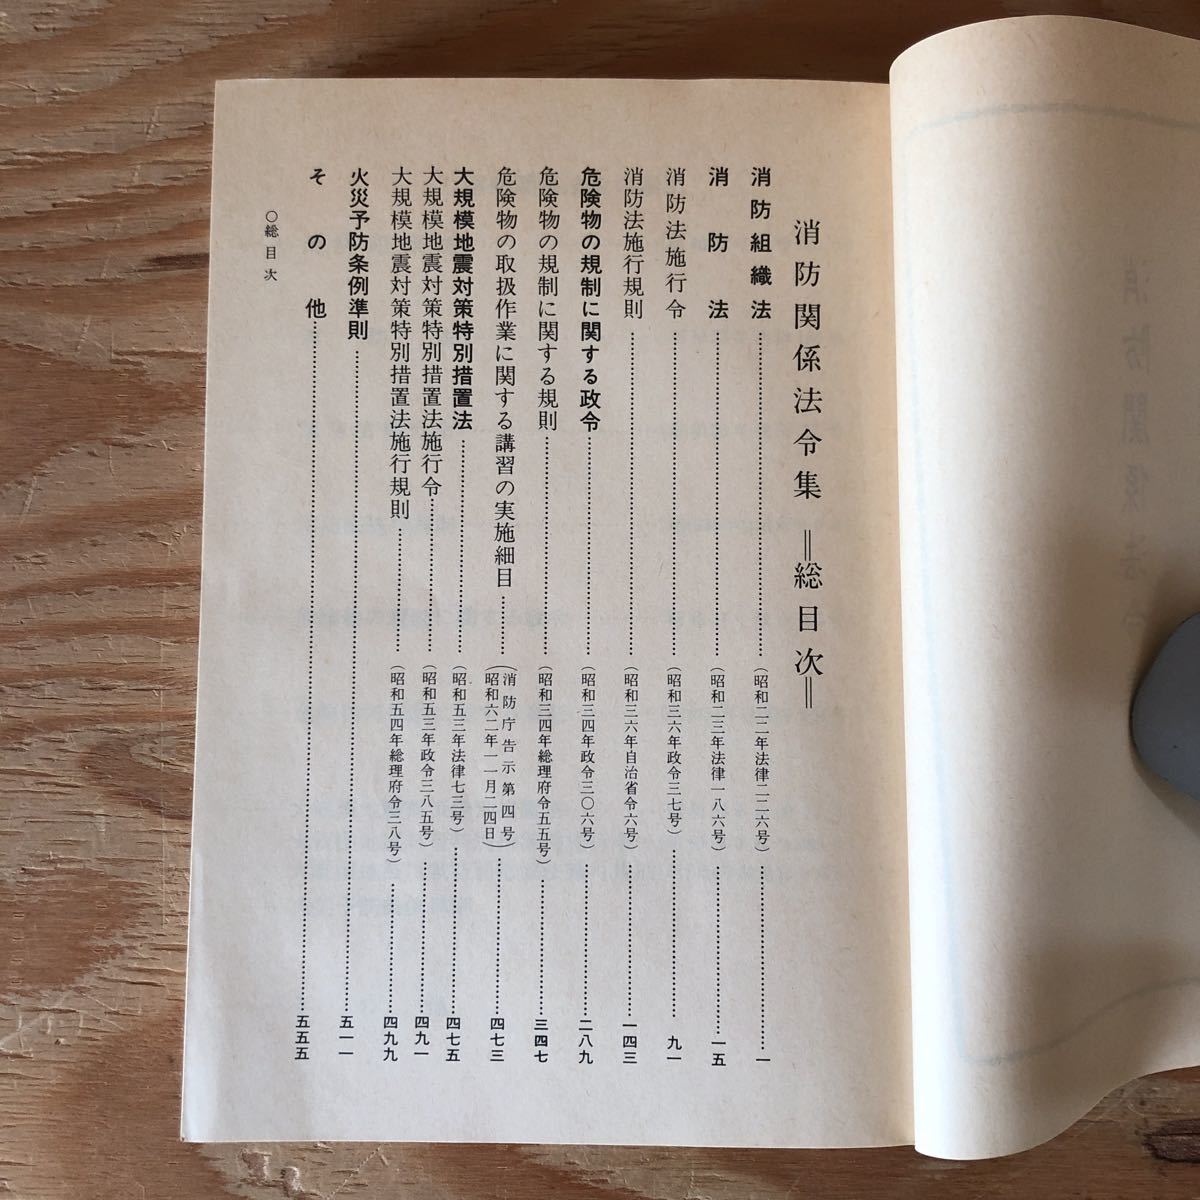 消防関係法令集 ＝総目次＝
消防組織法……(昭和二二年法律二二六号)……一
消防法……(昭和二三年法律一八六号)……一五
消防法施行令……(昭和三六年政令三七号)……九一
消防法施行規則……(昭和三六年自治省令六号)……一四三
危険物の規制に関する政令……(昭和三四年政令三〇六号)……二八九
危険物の規制に関する規則……(昭和三四年総理府令五五号)……三四七
危険物の取扱作業に関する講習の実施細目……(消防庁告示第四号 昭和六二年一一月二四日)……四七三
大規模地震対策特別措置法……(昭和五三年法律七三号)……四七五
大規模地震対策特別措置法施行令……(昭和五三年政令三八五号)……四九一
大規模地震対策特別措置法施行規則……(昭和五四年総理府令三八号)……四九九
火災予防条例準則……五一一
その他……五五五
〇総目次